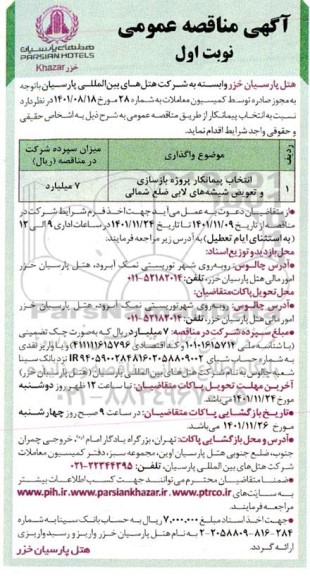 آگهی مناقصه عمومی
نوبت اول
هتلهای پارسیان
PARSIAN HOTELS
خزر Khazar
هتل پارسیان خزر وابسته به شرکت هتل‌های بین‌المللی پارسیان باتوجه
به مجوز صادره توسط کمیسیون معاملات به شماره ۲۸ مورخ ۱۴۰۱/۰۸/۱۸ در نظر دارد
نسبت به انتخاب پیمانکار از طریق مناقصه عمومی به شرح ذیل به اشخاص حقیقی
و حقوقی واجد شرایط اقدام نماید.
ردیف
موضوع واگذاری
میزان سپرده شرکت در مناقصه (ریال)
۱
انتخاب پیمانکار پروژه بازسازی و تعویض شیشه‌های لابی ضلع شمالی
۷ میلیارد
از متقاضیان دعوت به عمل می‌آید جهت اخذ فرم شرایط شرکت در
مناقصه از تاریخ ۱۴۰۱/۱۱/۰۹ تا تاریخ ۱۴۰۱/۱۱/۲۴ در ساعات اداری ۹ الی ۱۲
(به استثنای ایام تعطیل) به آدرس زیر مراجعه فرمایند:
محل بازدید و توزیع اسناد:
آدرس چالوس: روبه‌روی شهر توریستی نمک آبرود، هتل پارسیان خزر
امور مالی هتل پارسیان خزر، تلفن: ۵۲۱۸۲۰۱۴-۰۱۱
محل تحویل پاکات متقاضیان:
آدرس چالوس: روبه‌روی شهر توریستی نمک آبرود، هتل پارسیان خزر
امور مالی هتل پارسیان خزر، تلفن: ۵۲۱۸۲۰۱۴-۰۱۱
مبلغ سپرده شرکت در مناقصه: ۷ میلیارد ریال که به صورت چک تضمینی
شعبه چالوس به نام شرکت هتل‌های بین‌المللی پارسیان (هتل پارسیان خزر)
آخرین مهلت تحویل پاکات متقاضیان: تا ساعت ۱۲ ظهر روز دوشنبه
مورخ ۱۴۰۱/۱۱/۲۴ می‌باشد.
تاریخ بازگشایی پاکات متقاضیان: در ساعت ۹ صبح روز چهارشنبه
مورخ ۱۴۰۱/۱۱/۲۶ می‌باشد.
آدرس و محل بازگشایی پاکات: تهران، بزرگراه یادگار امام "ره"، خروجی چمران
جنوب، ضلع جنوبی هتل پارسیان اوین، مجموعه سبز، دفتر کمیسیون معاملات
شرکت هتل‌های بین المللی پارسیان، تلفن: ۲۲۳۴۴۳۹۵-۰۲۱
ضمناً متقاضیان محترم می‌توانند جهت کسب اطلاعات بیشتر
به سایت‌های www.ptrco.ir و www.parsiankhazar.ir و www.pih.ir
مراجعه فرمایند.
جهت اخذ اسناد مبلغ ۷,۰۰۰,۰۰۰ ریال به حساب بانک سینا به شماره
۲-۲۰۵۸۸۰۹-۸۱۶-۲۸۴ به نام هتل پارسیان خزر واریز و رسید واریزی
ارائه گردد.
هتل پارسیان خزر